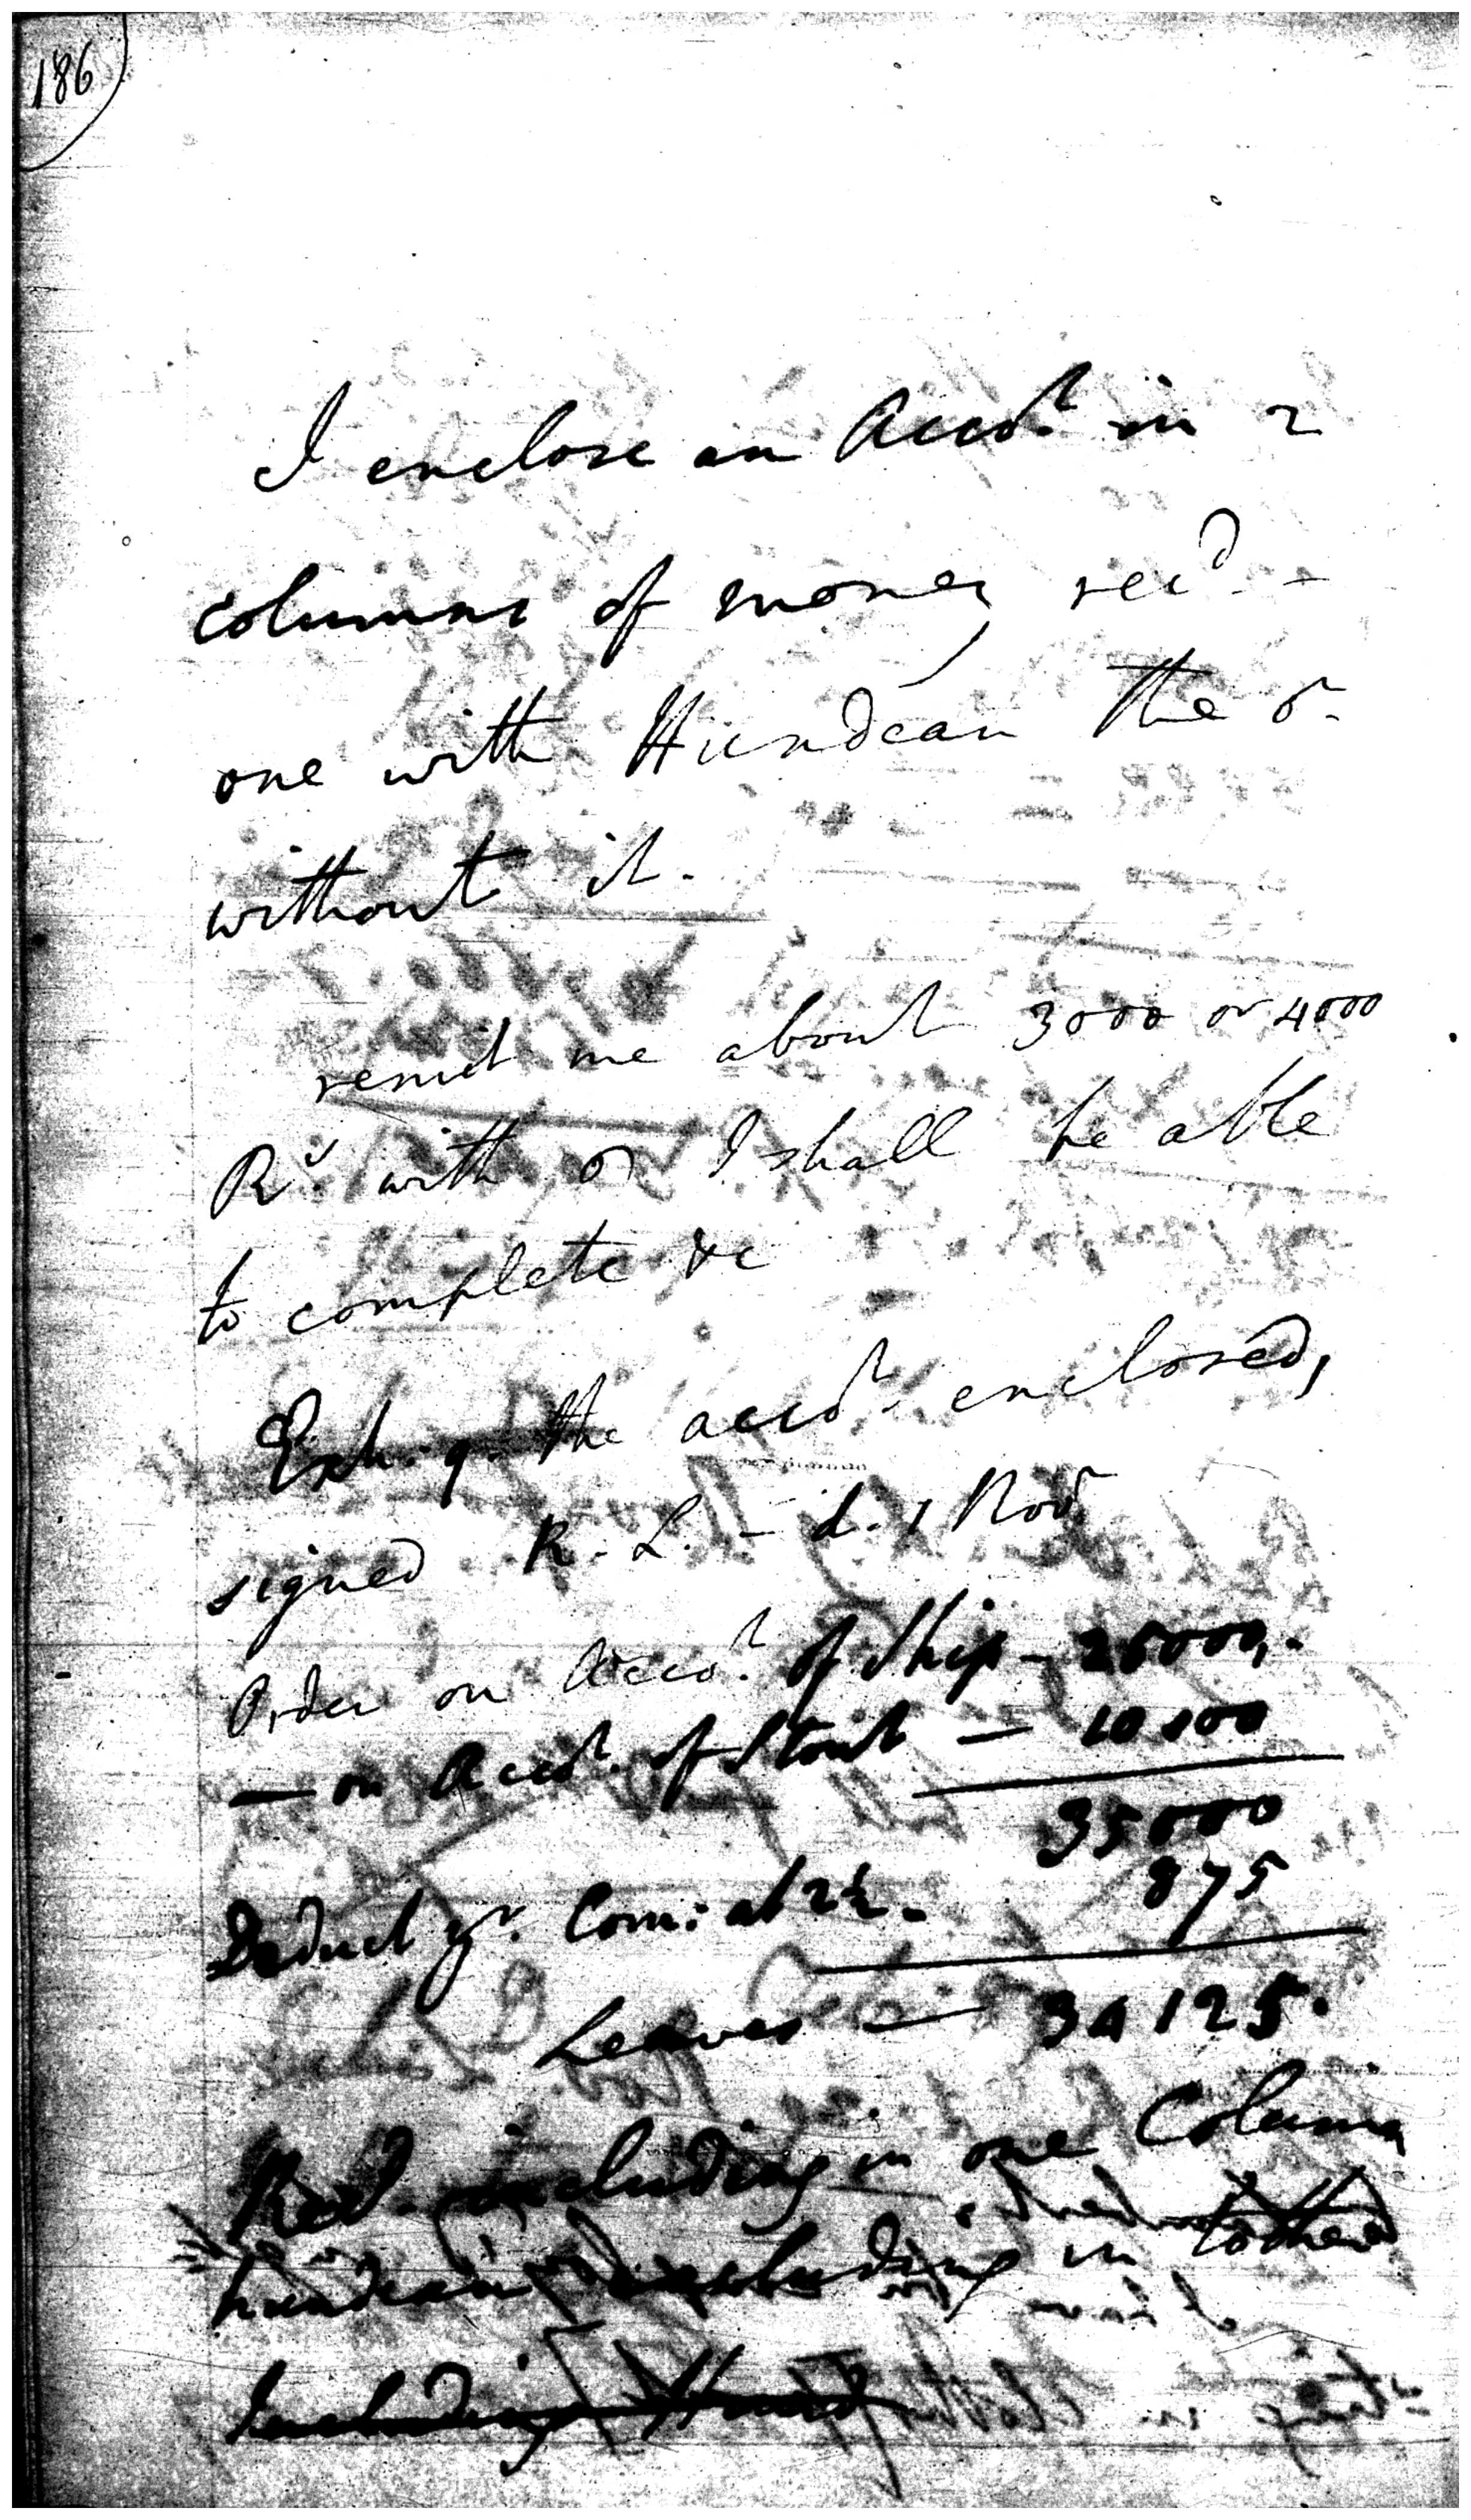 186
I enclose an Acco.t in 2
columns of money rec.d -
one with Hundean the o.r
without it.
remit me about 3000 or 4000
R.s with I shall be able
to complete &c
Exh: 9. the acco.t enclosed,
signed R. L. - d. 1 Nov.r
Order on Acco.t of Ship - 25000,.
— on Acco.t of Stout — 10000
35000
Deduct y.r Com: at 2½. 875
Leaves — 34125.
Rec.d including in one Column
hundean excluding in tother
Including Hund